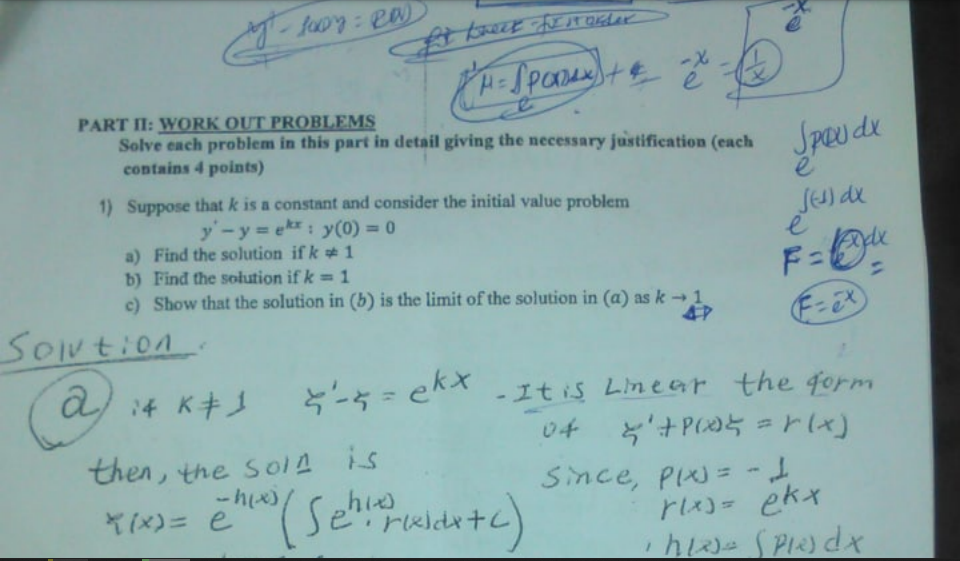 e^-x
μ = e^∫p(x)dx
e^-x = 1/x
PART II: WORK OUT PROBLEMS
Solve each problem in this part in detail giving the necessary justification (each
contains 4 points)
e^∫p(x)dx
1) Suppose that k is a constant and consider the initial value problem
e^∫(-1)dx
y' - y = e^kx ; y(0) = 0
a) Find the solution if k ≠ 1
b) Find the solution if k = 1
c) Show that the solution in (b) is the limit of the solution in (a) as k → 1
F = e^-x
Solution.
a) if K ≠ 1 y' - y = e^kx - It is Linear the form
of y' + P(x)y = r(x)
then, the soln is Since, P(x) = -1
y(x) = e^-h(x) (∫e^h(x) . r(x)dx + c) r(x) = e^kx
h(x) = ∫P(x)dx